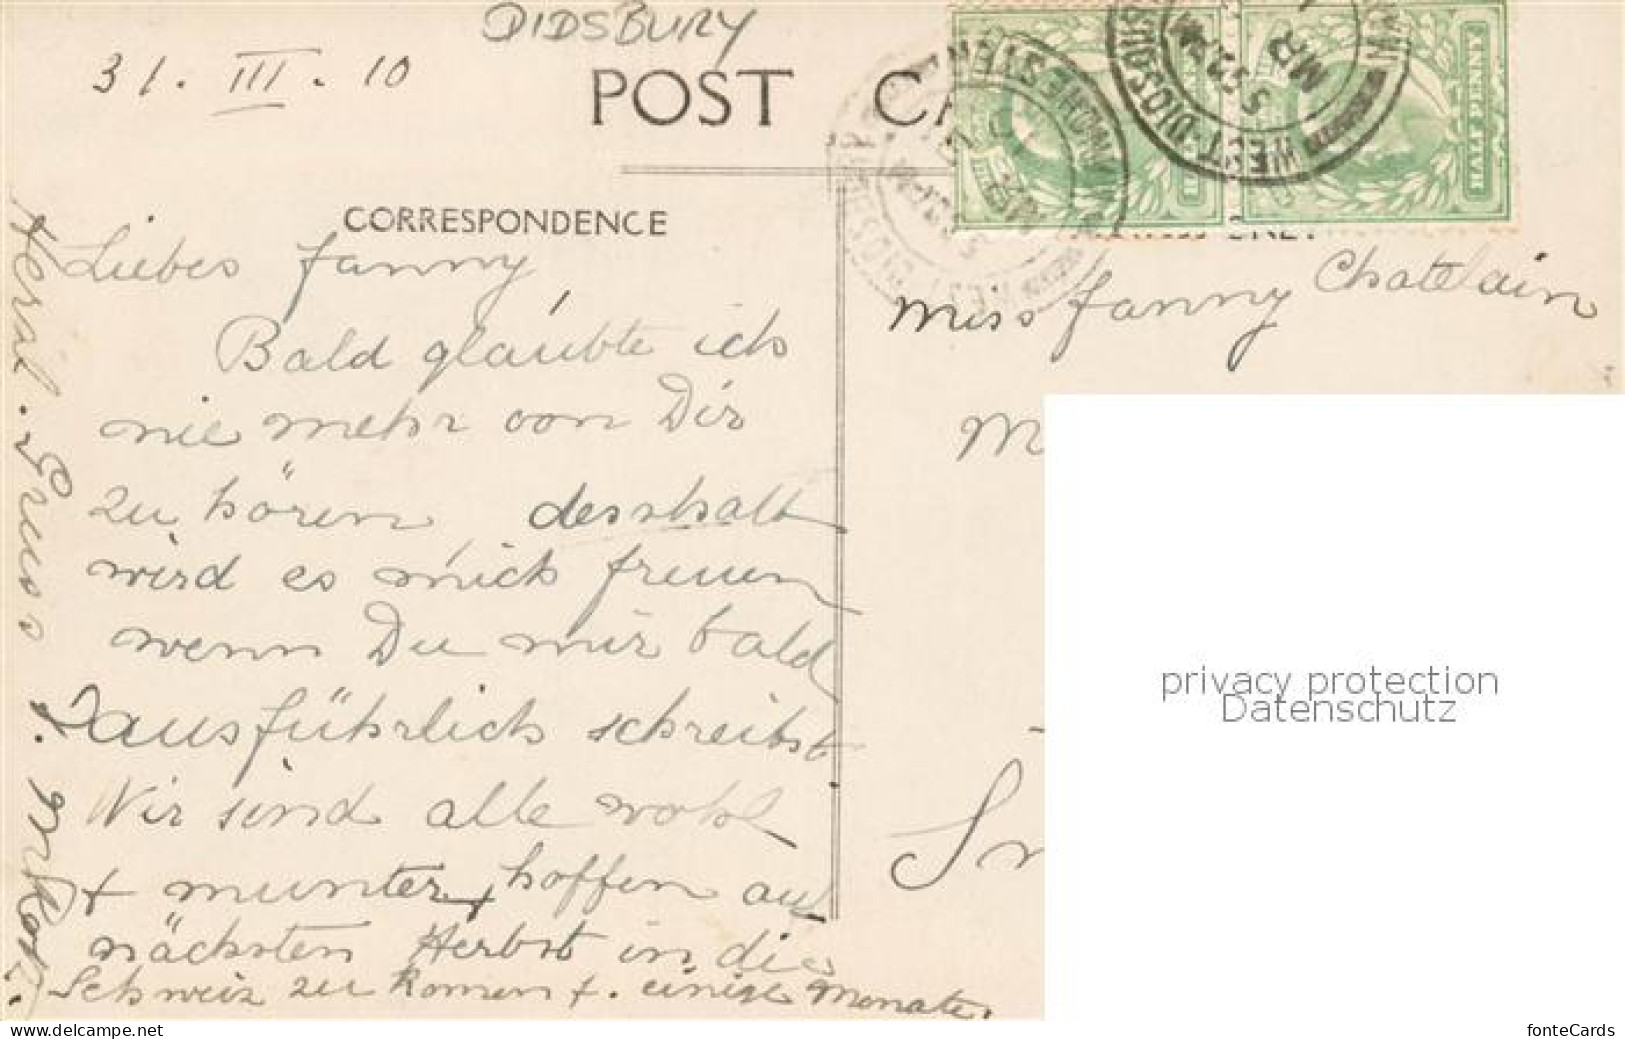 DIDSBURY
31. III. 10
POST CA
CORRESPONDENCE
Liebes Fanny,
Bald glaubte ich
nie mehr von Dir
zu hören desshalb
wird es mich freuen
wenn Du mir bald
ausführlich schreibst
Wir sind alle wohl
+ munter, hoffen auf
nächsten Herbst in die
Schweiz zu komen f. einige Monate.
Herzl. Gruss
HALF PENNY
WEST DIDSBURY
MR
Miss Fanny Chatelain
M
privacy protection
Datenschutz
www.delcampe.net
fonteCards